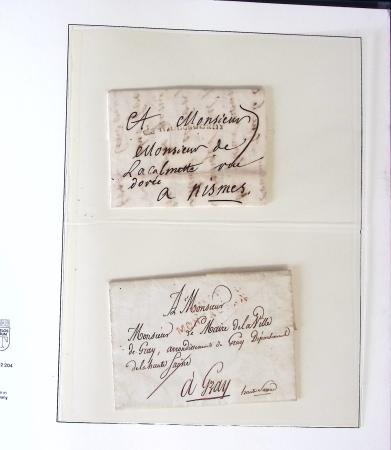 A Monsieur
Monsieur de
Lacalmette rue
dorée
a nismes
A Monsieur
Monsieur le Maire de la Ville
de Gray, arrondissement de Gray Département
de la haute Saône
à Gray
haute Saone
2 204